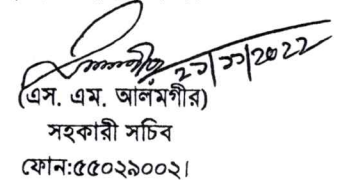 ২১/১১/২০২২
(এস. এম. আলমগীর)
সহকারী সচিব
ফোন:৫৫০২৯০০২।